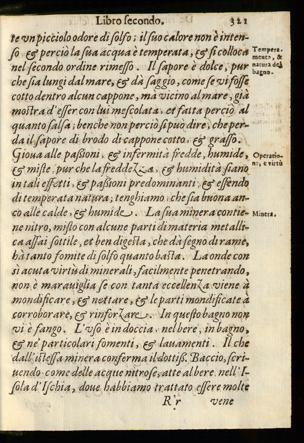 Libro secondo. 321
te un picciolo odore di solfo; il suo calore non è inten-
so & perciò la sua acqua è temperata, & si colloca
nel secondo ordine rimesso. Il sapore è dolce, pur
che sia lungi dal mare, & dà saggio, come se vi fosse
cotto dentro alcun cappone, ma vicino al mare, già
mostra d'esser con lui mescolata, et fatta perciò al
quanto salsa; benche non perciò si può dire, che per-
da il sapore di brodo di cappone cotto, & grasso.
Gioua alle passioni, & infermità fredde, humide,
& miste, pur che la freddezza, & humidità siano
in tali effetti, & passioni predominanti, & essendo
di temperata natura, tenghiamo che sia buona an-
co alle calde, & humide. La sua minera contie-
ne nitro, misto con alcune parti di materia metalli-
ca assai sottile, et ben digesta, che dà segno di rame,
hà tanto fomite di solfo quanto basta. La onde con
sì acuta virtù di minerali, facilmente penetrando,
non è marauiglia se con tanta eccellenza viene à
mondificare, & nettare, & le parti mondificate à
corroborare, & rinforzare. In questo bagno non
vi è fango. L'vso è in doccia, nel bere, in bagno,
& ne' particolari fomenti, & lauamenti. Il che
dall'istessa minera conferma il dottiss. Baccio, scri-
uendo come delle acque nitrose, atte al bere, nell'I-
sola d'Ischia, doue habbiamo trattato essere molte
Rr vene
Tempera-
mento, &
natura del
bagno.
Operatio-
ni, e virtù
Minera.